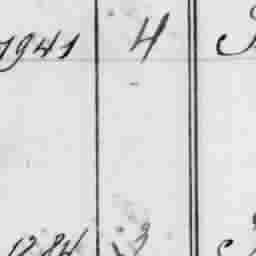 1941 4
1284 3